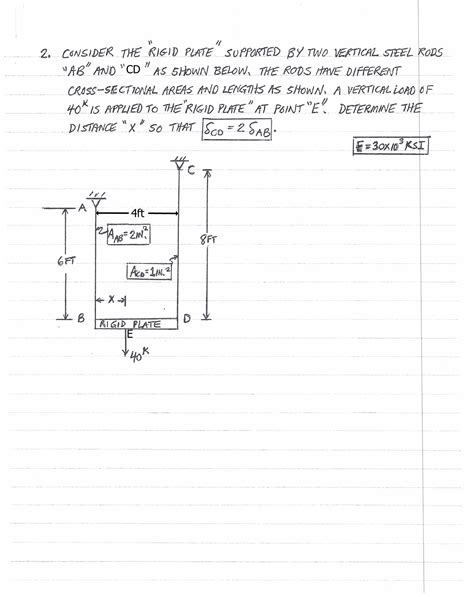 2. CONSIDER THE "RIGID PLATE" SUPPORTED BY TWO VERTICAL STEEL RODS
"AB" AND "CD" AS SHOWN BELOW. THE RODS HAVE DIFFERENT
CROSS-SECTIONAL AREAS AND LENGTHS AS SHOWN. A VERTICAL LOAD OF
40ᴷ IS APPLIED TO THE "RIGID PLATE" AT POINT "E". DETERMINE THE
DISTANCE "X" SO THAT δCD = 2 δAB.
E = 30x10³ KSI
C
A
4ft
AAB = 2 IN.²
8FT
6FT
ACD = 1 IN.²
X
B
RIGID PLATE
D
E
40ᴷ